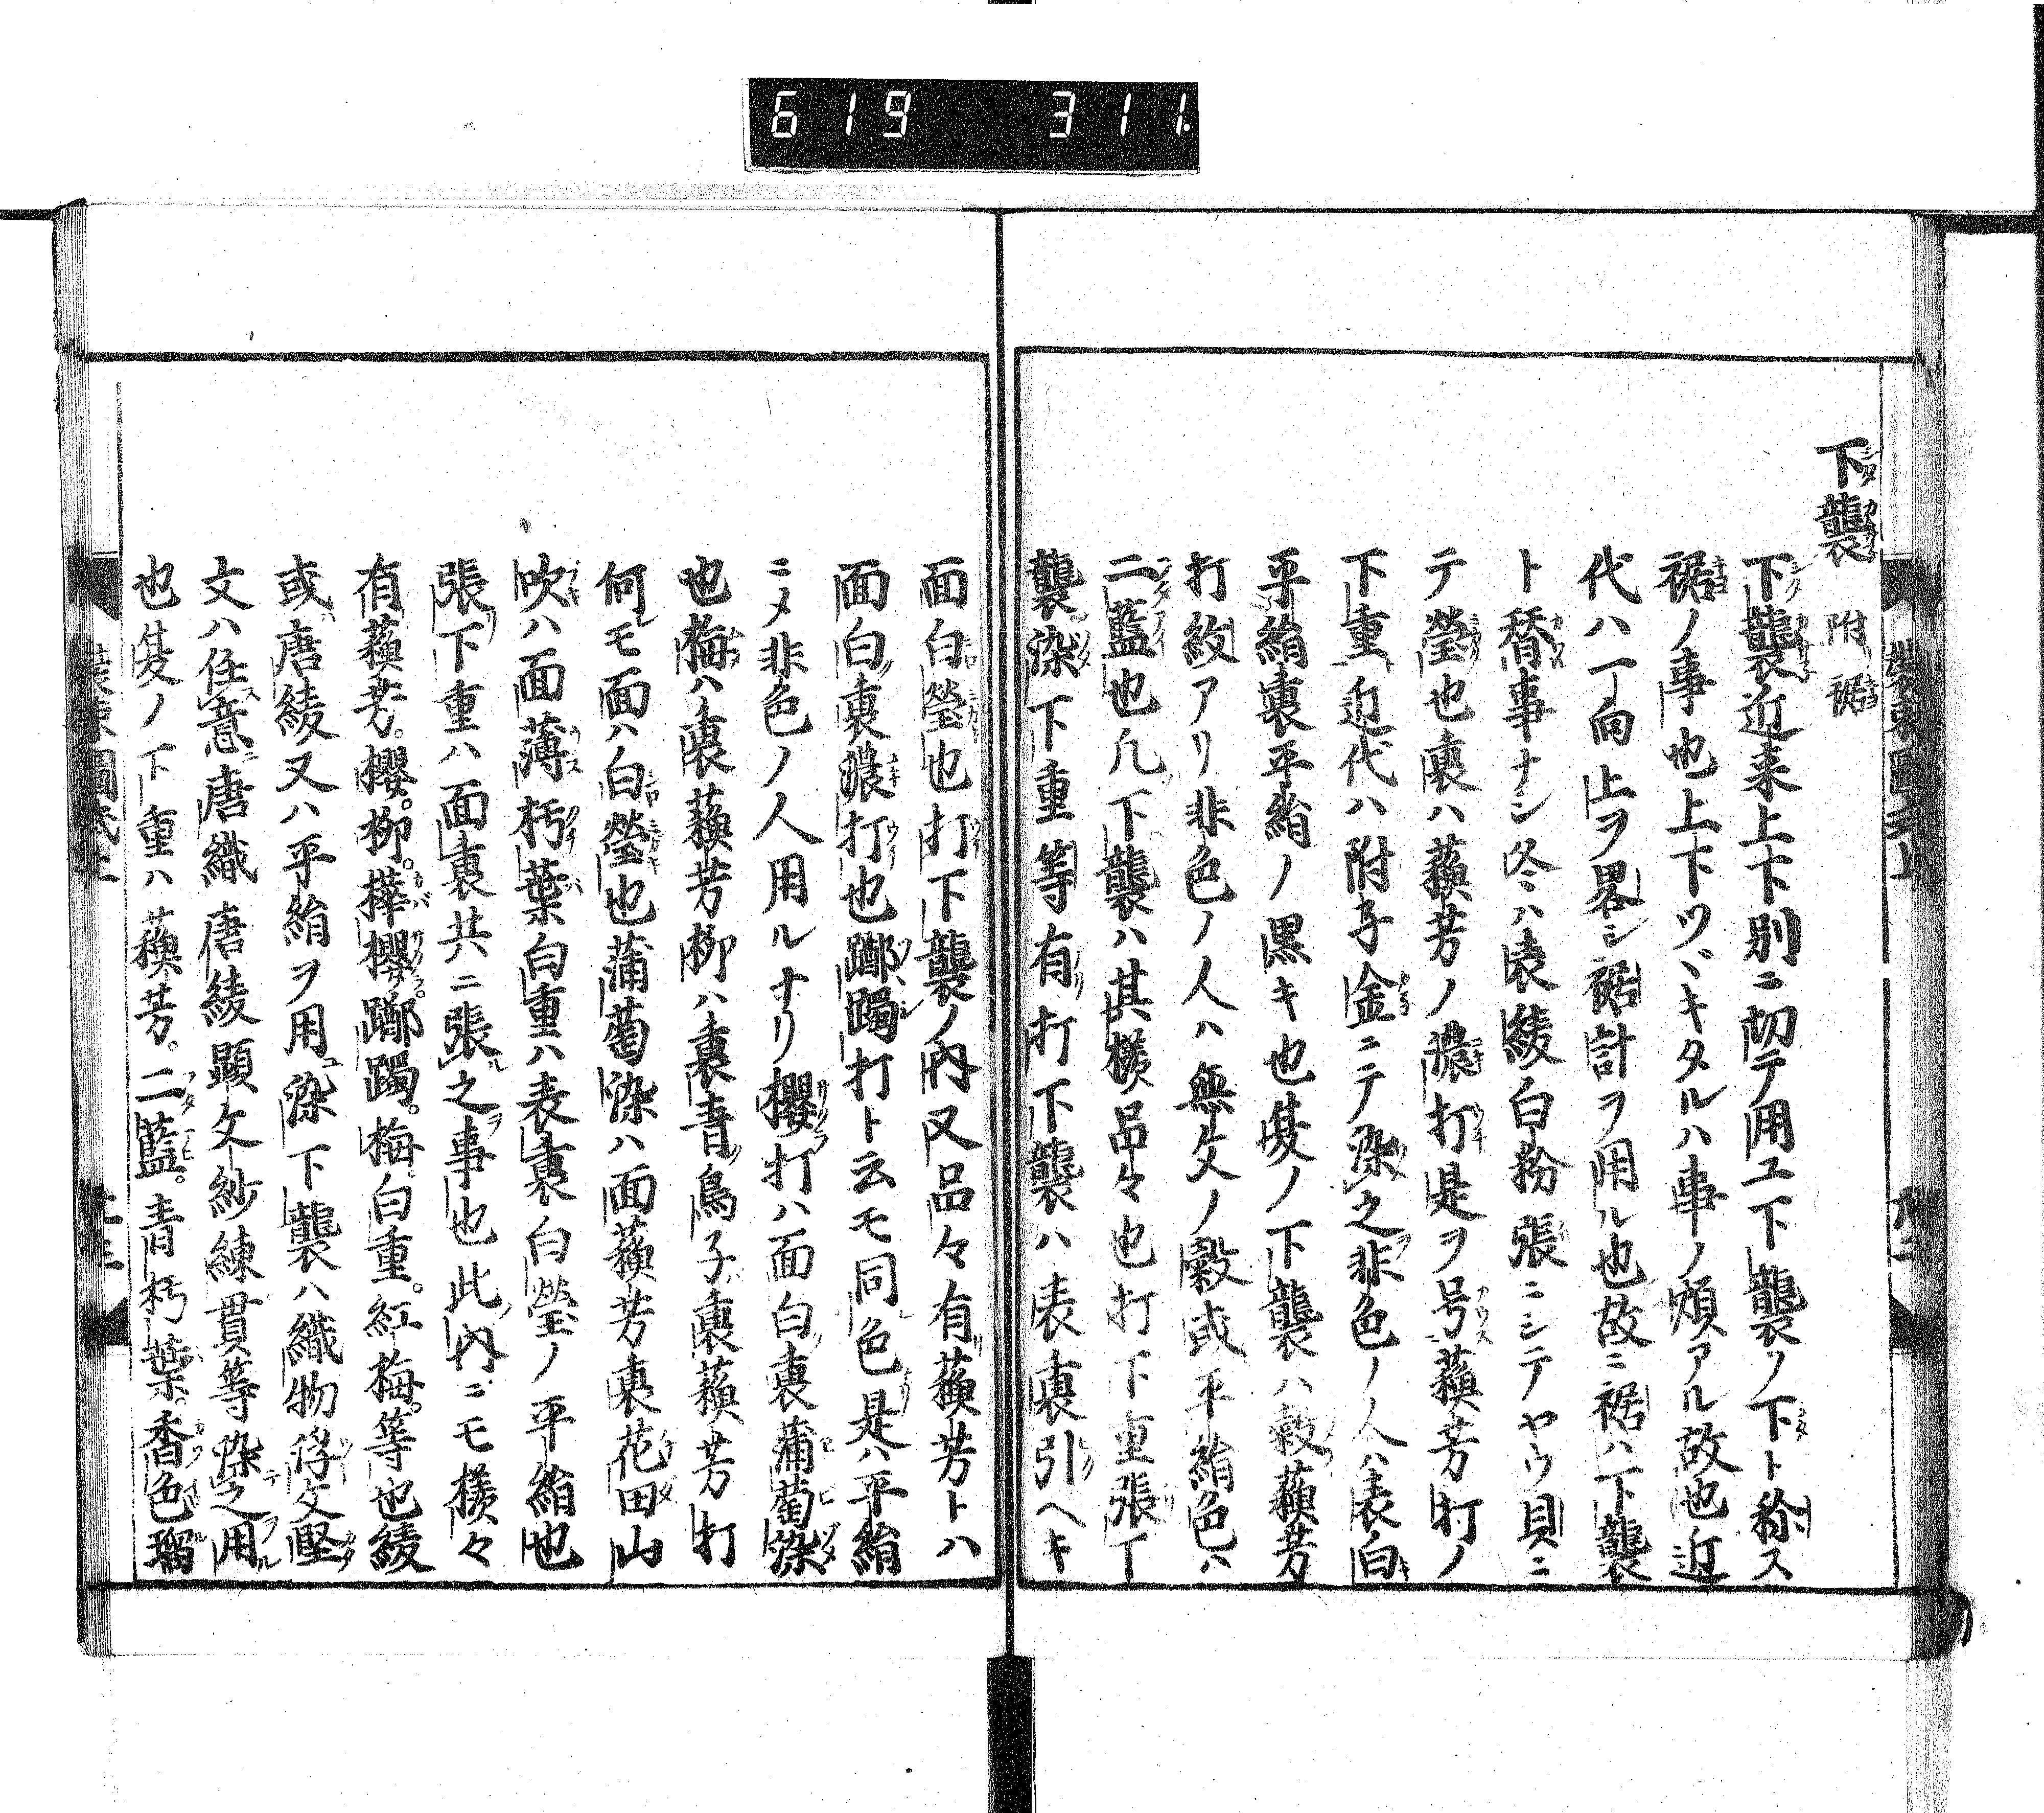 619 311
下襲 附裾
下襲近来上下別ニ切テ用ユ下襲ノ下ト称ス
裾ノ事也上下ツヾキタルハ事ノ煩アル故也近
代ハ一向上ヲ畧シ裾計ヲ用ル也故ニ裾ハ下襲
ト替事ナシ冬ハ表綾白粉張ニシテヤウ貝ニ
テ瑩也裏ハ蘓芳ノ濃打是ヲ号蘓芳打ノ
下重近代ハ附子金ニテ染之非色ノ人ハ表白
平絹裏平絹ノ黒キ也夏ノ下襲ハ縠蘓芳
打紋アリ非色ノ人ハ無文ノ縠或平絹色ハ
二藍也凡下襲ハ其様品々也打下重張下
襲染下重等有打下襲ハ表裏引ヘキ
面白瑩也打下襲ノ内又品々有蘓芳トハ
面白裏濃打也躑躅打ト云モ同色是ハ平絹
ニメ非色ノ人用ルナリ櫻打ハ面白裏蒲萄染
也梅ハ裏蘓芳柳ハ裏青鳥子裏蘓芳打
何モ面ハ白瑩也蒲萄染ハ面蘓芳裏花田山
吹ハ面薄朽葉白重ハ表裏白瑩ノ平絹也
張下重ハ面裏共ニ張之事也此内ニモ様々
有蘓芳。櫻。柳。樺櫻。躑躅。梅。白重。紅梅。等也綾
或唐綾又ハ平絹ヲ用染下襲ハ織物浮文堅
文ハ任意唐織唐綾顕文紗練貫等染之用
也夏ノ下重ハ蘓芳。二藍。青朽葉。香色瑠